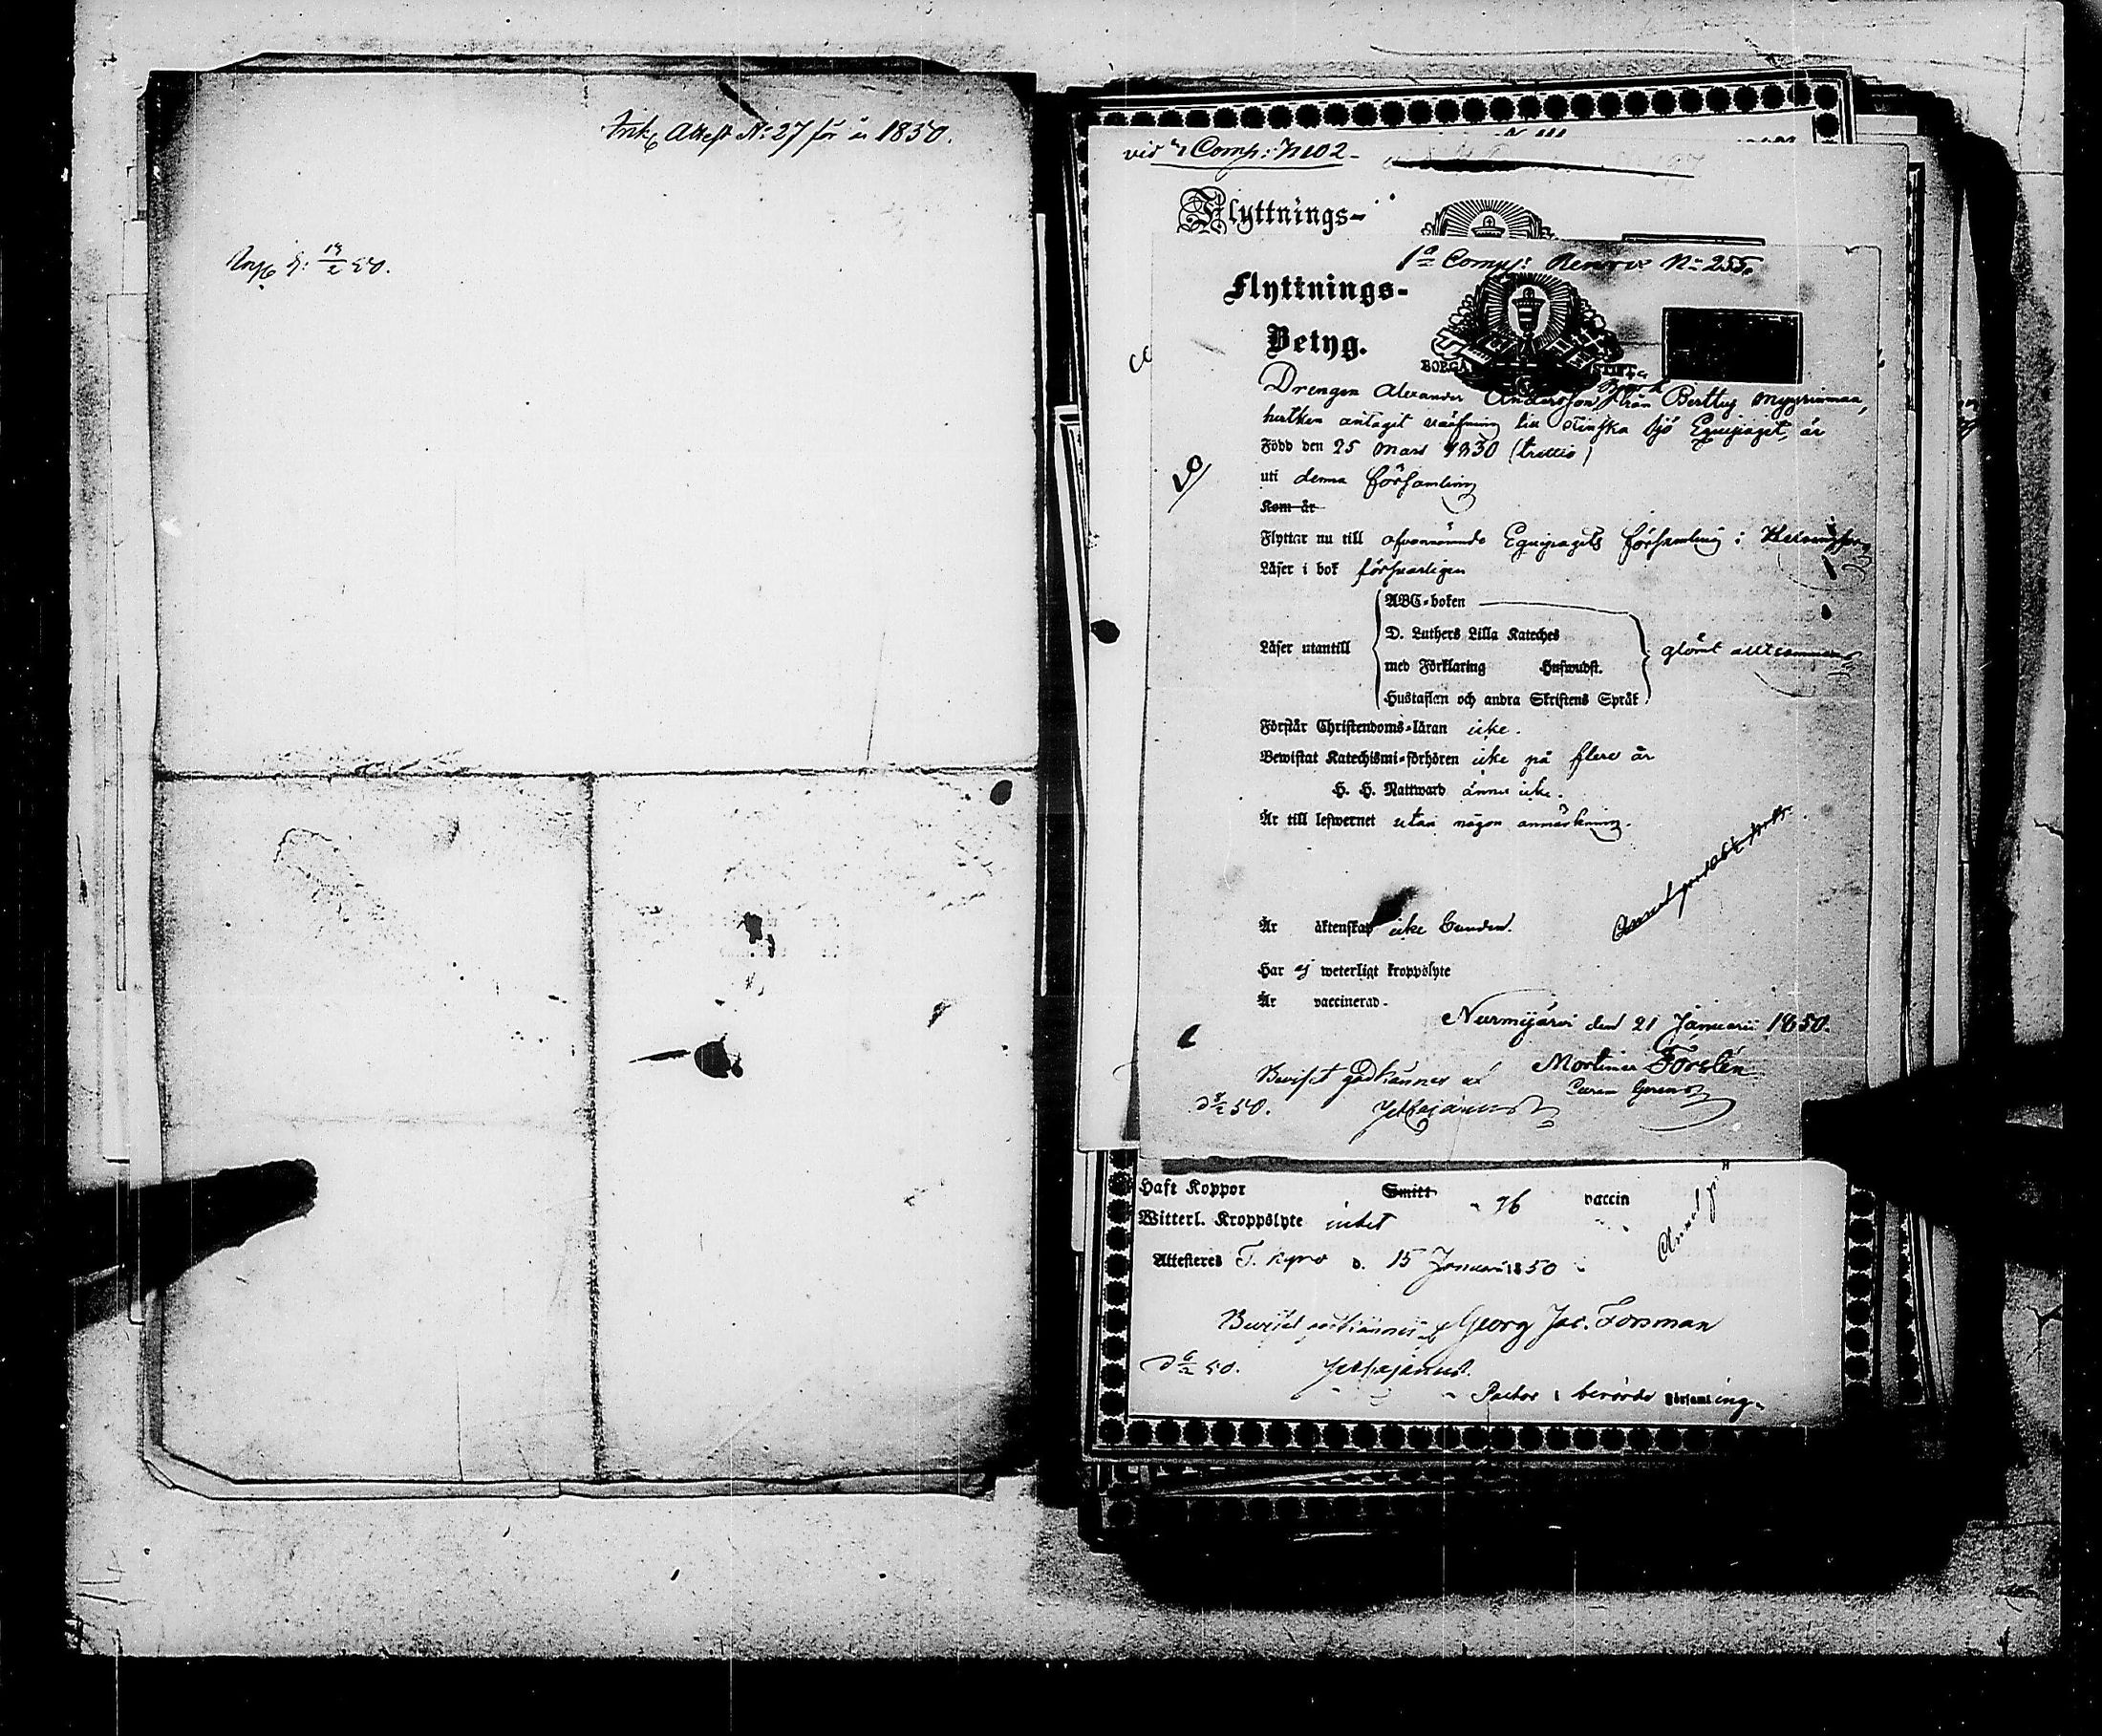 Ink Attest No 27 för år 1850.
vid Comp: No 2
Flyttnings-
1a Comp: Reserv: No 255.
Flyttnings-
Betyg.
BORGÅ STIFT
Drengen Alexander Andersson från Berttuj
hvilken antagit värfning till Finska Sjö Equipaget, är
Född den 25 Mars 1830 (trettio)
uti denna församling
Kom år
Flyttar nu till ofvannämnde Equipagets församling i Helsingfors
Läser i bok försvarligen
Läser utantill
ABC-boken
D. Luthers Lilla Kateches
med Förklaring Hufwudst.
Hustaflan och andra Skriftens Språk
glömt alltsammans
Förstår Christendoms-läran icke.
Bewistat Katechismi-förhören icke på flere år
H. H. Nattward ännu icke.
Är till lefwernet utan någon anmärkning.
Är äktenskap icke bunden.
Har ej weterligt kroppslyte
Är vaccinerad.
Nurmijärvi den 21 Januarii 1850.
Mortimer Forstén
Beviset godkännes af
Haft Koppor Smitt vaccin
Witterl. Kroppslyte intet
Attesteres T. Kyro d. 15 Januari 1850
Beviset godkännes af Georg Jac. Forsman
Pastor i berörde Församling